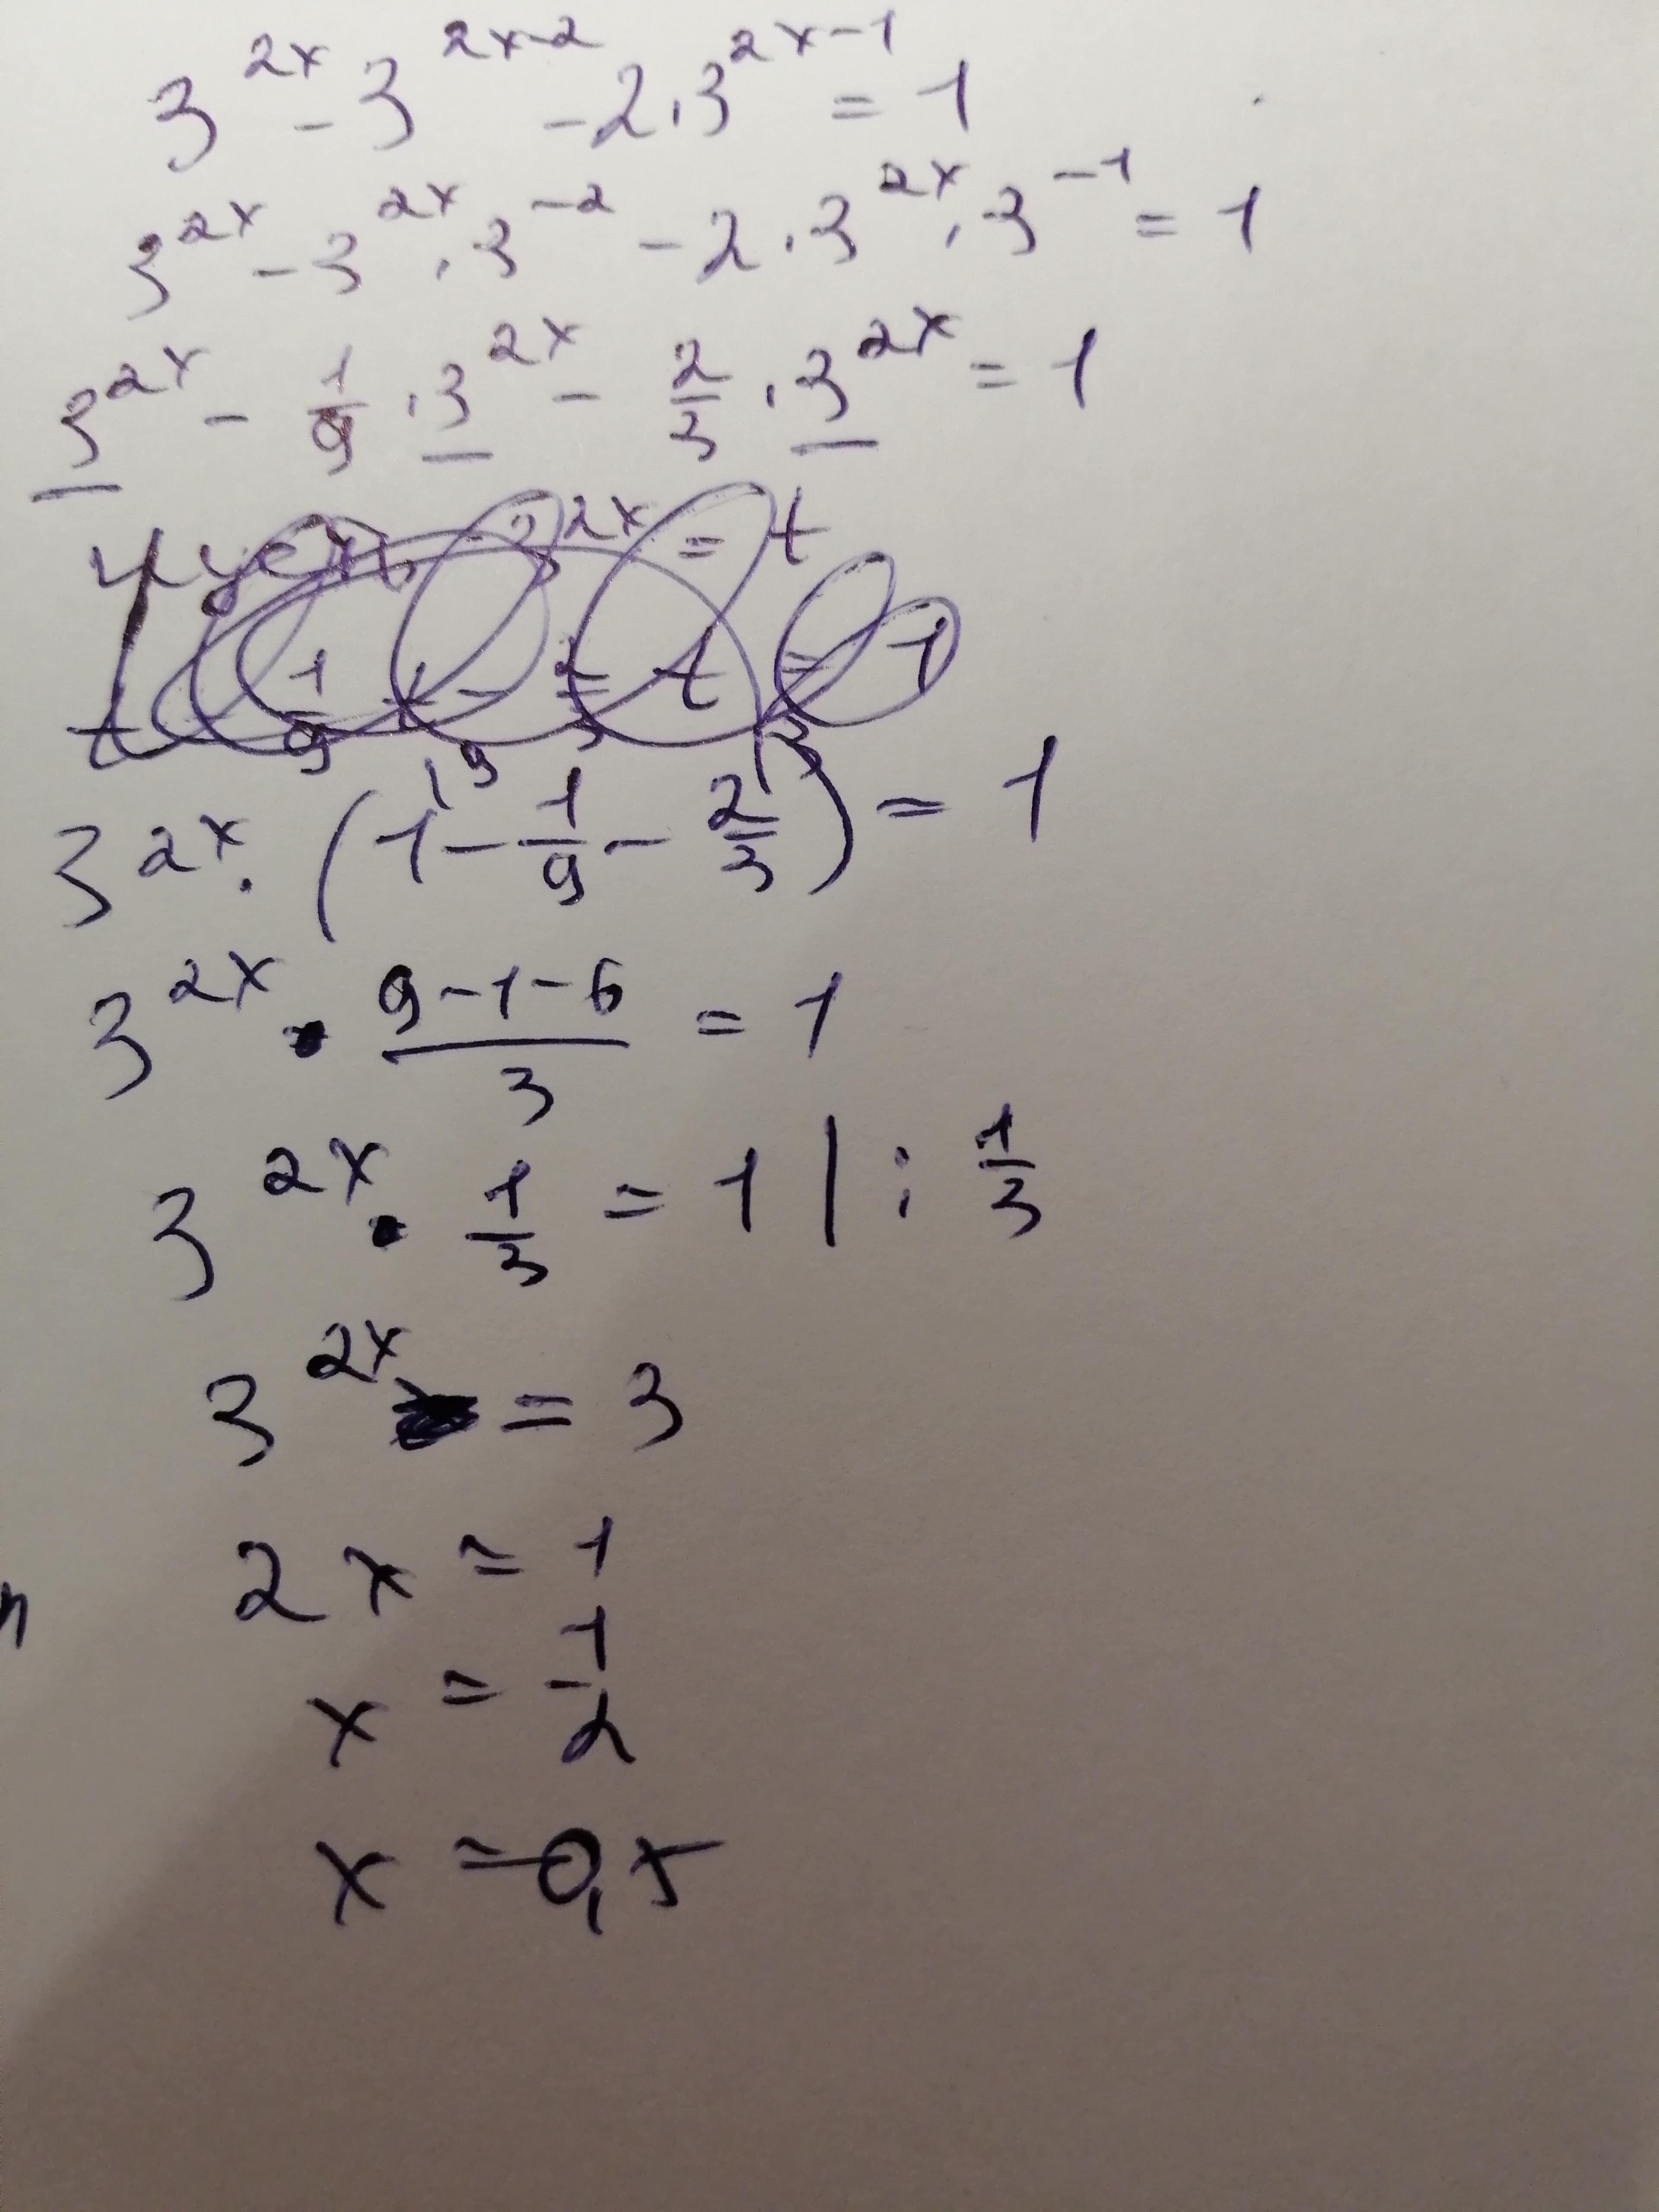 3^{2x} - 3^{2x-2} - 2 · 3^{2x-1} = 1
3^{2x} - 3^{2x} · 3^{-2} - 2 · 3^{2x} · 3^{-1} = 1
3^{2x} - \frac{1}{9} · 3^{2x} - \frac{2}{3} · 3^{2x} = 1
3^{2x} = t
t - \frac{1}{9} t - \frac{2}{3} t = 1
3^{2x} · (1^{(9} - \frac{1}{9} - \frac{2}{3}^{(3}) = 1
3^{2x} · \frac{9-1-6}{3} = 1
3^{2x} · \frac{1}{3} = 1 | : \frac{1}{3}
3^{2x} = 3
2x = 1
x = \frac{1}{2}
x = 0,5